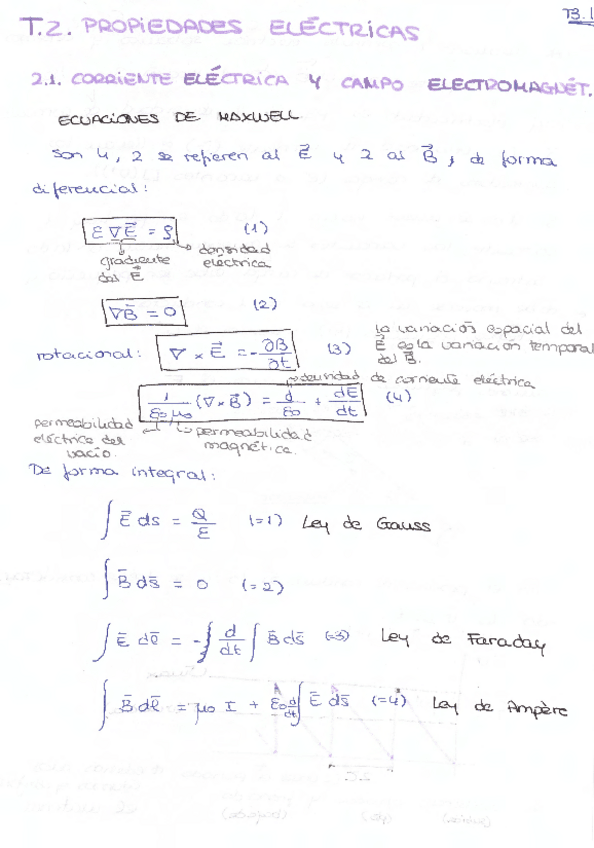 T3.1
T.2. PROPIEDADES ELÉCTRICAS
2.1. CORRIENTE ELÉCTRICA Y CAMPO ELECTROMAGNÉT.
ECUACIONES DE MAXWELL
Son 4, 2 se refieren al E⃗ y 2 as B⃗, de forma
diferencial:
ε ∇E⃗ = ρ (1)
gradiente del E⃗
densidad eléctrica
∇B̄ = 0 (2)
rotacional: ∇ × E⃗ = -∂B/∂t (3)
la variación espacial del
E⃗ es la variación temporal
del B⃗.
densidad de corriente eléctrica
1/(ε₀μ₀) (∇×B⃗) = d/ε₀ + dE/dt (4)
permeabilidad
eléctrica del
vacío.
permeabilidad
magnética.
De forma integral:
∫ Ē ds = Q/ε (=1) Ley de Gauss
∫ B̄ ds̄ = 0 (=2)
∫ Ē dl̄ = -∫ d/dt ∫ B̄ ds̄ (=3) Ley de Faraday
∫ B̄ dl̄ = μ₀ I + ε₀ d/dt ∫ Ē ds̄ (=4) Ley de Ampère